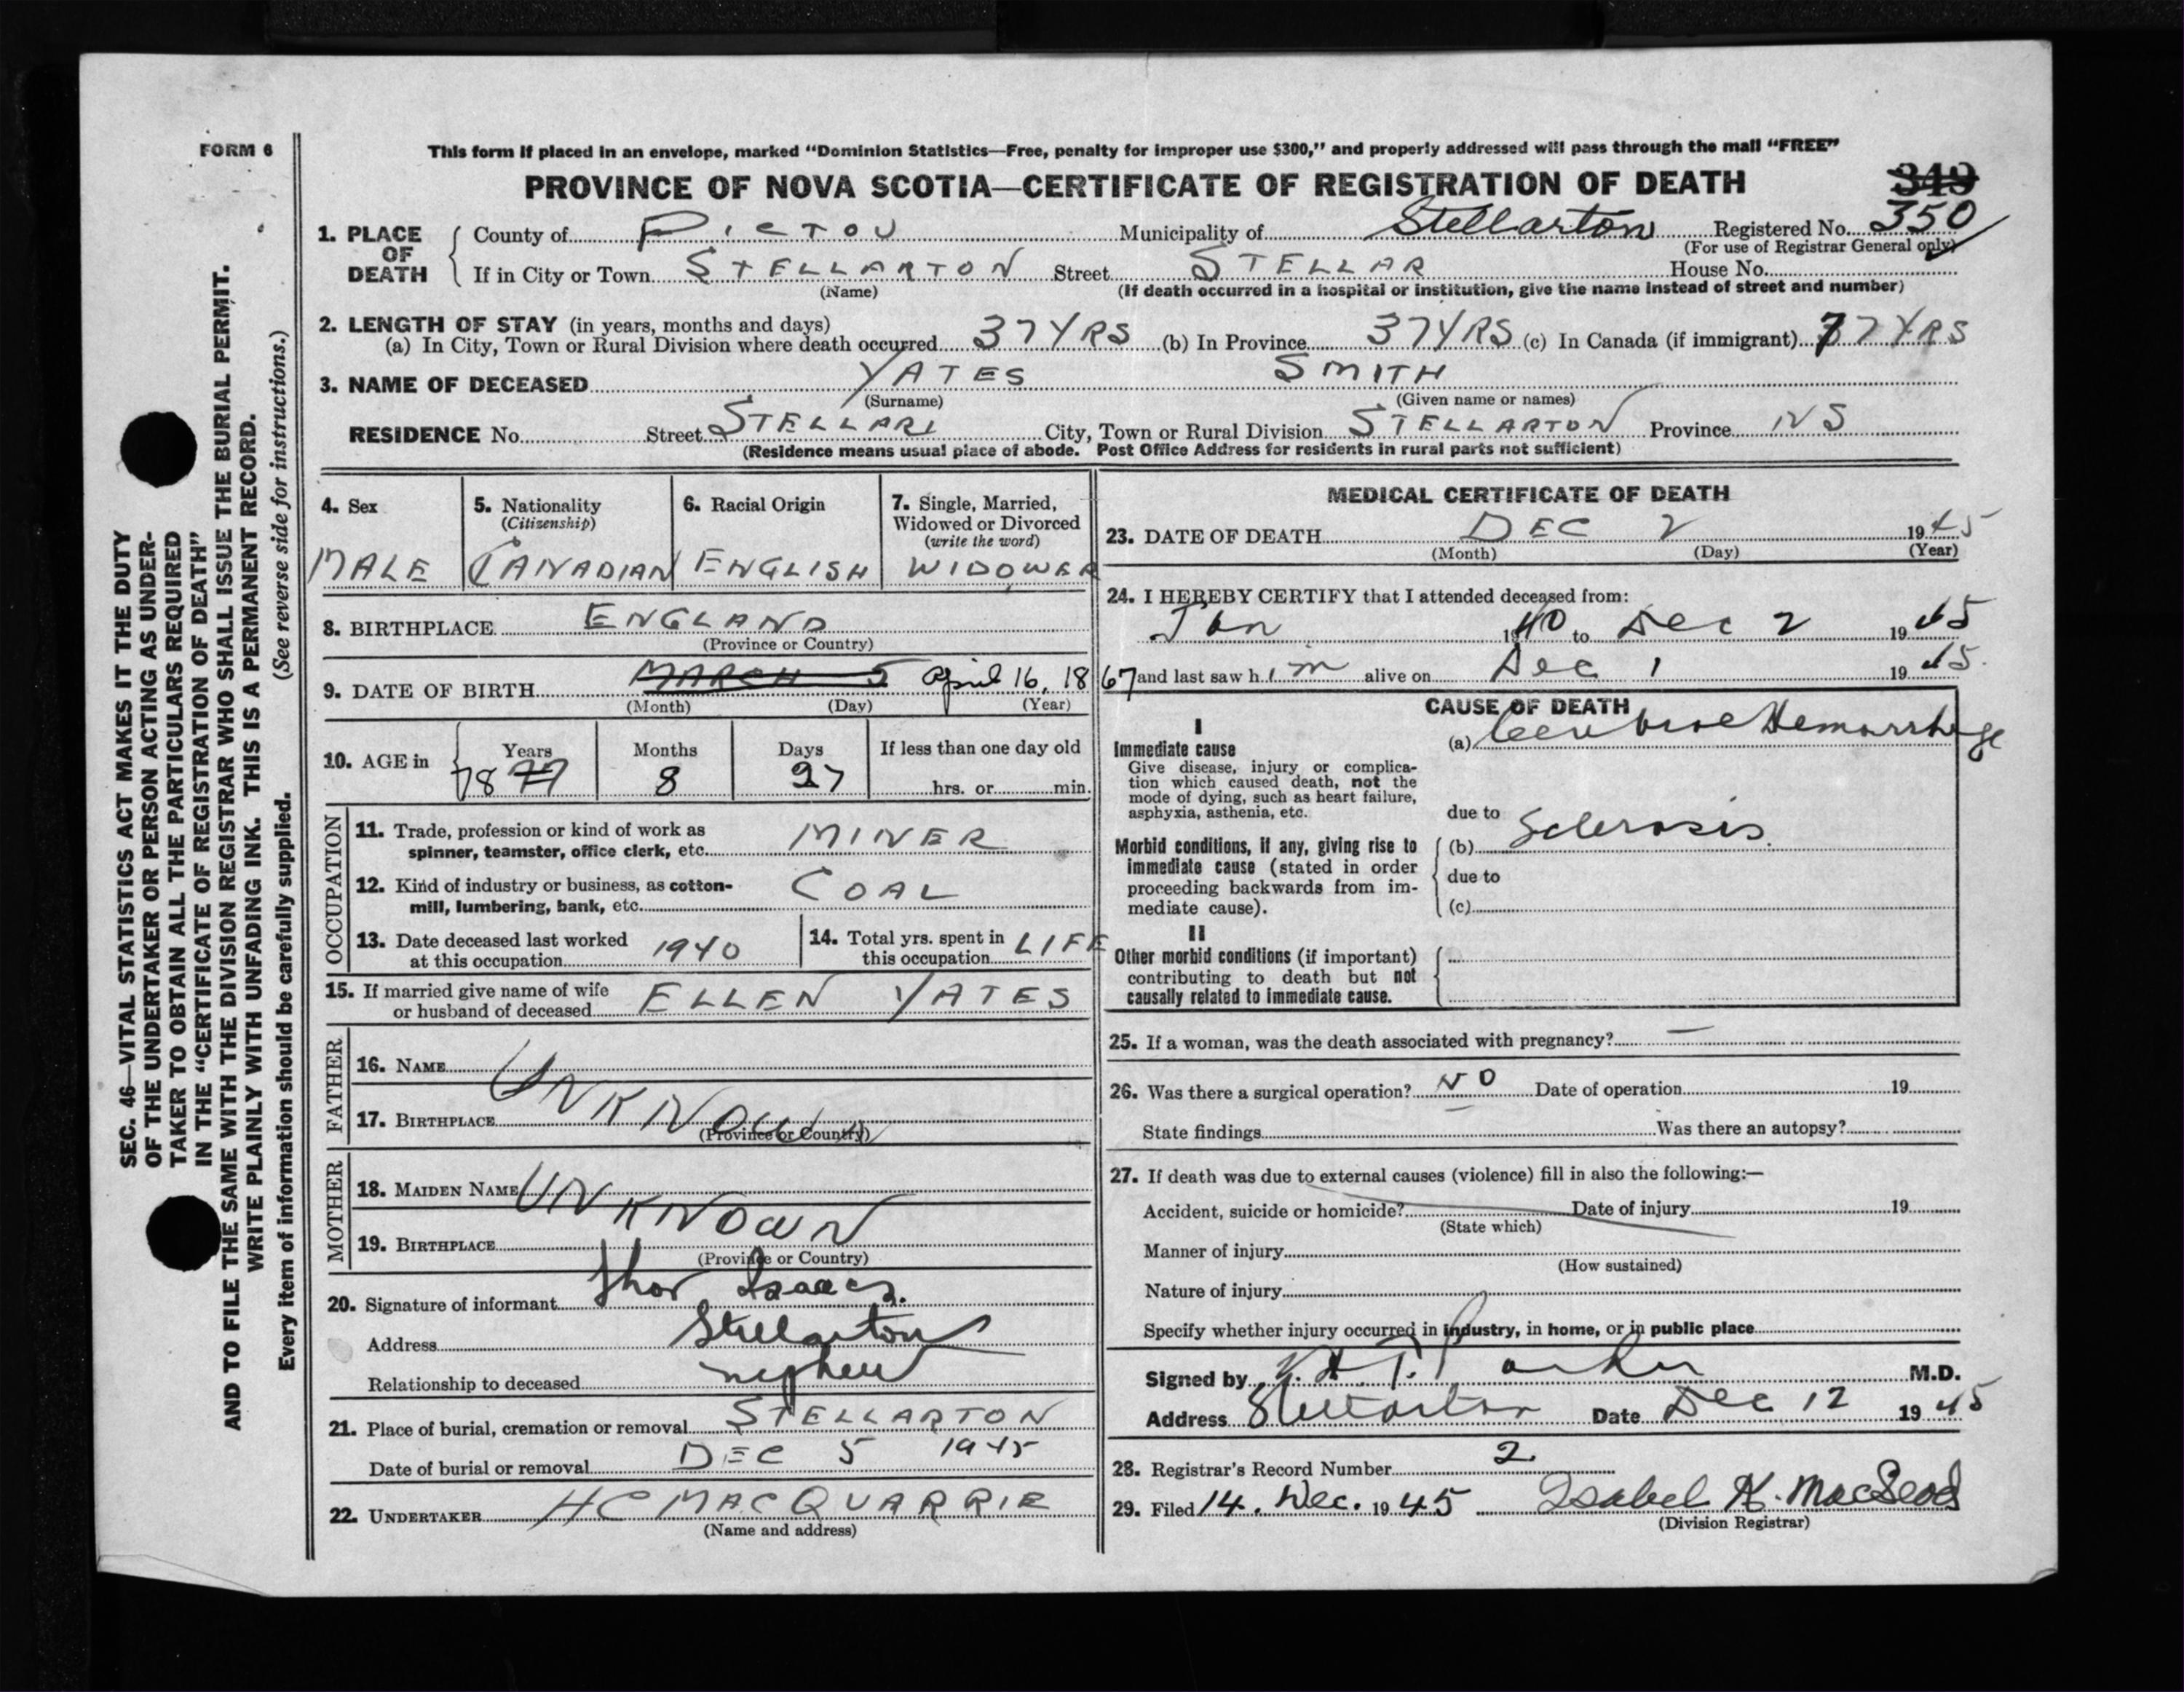 FORM 6
This form if placed in an envelope, marked "Dominion Statistics—Free, penalty for improper use $300," and properly addressed will pass through the mail "FREE"
PROVINCE OF NOVA SCOTIA—CERTIFICATE OF REGISTRATION OF DEATH
349
1. PLACE OF DEATH County of PICTOU Municipality of Stellarton Registered No. 350
(For use of Registrar General only)
If in City or Town STELLARTON Street STELLAR House No.
(Name) (If death occurred in a hospital or institution, give the name instead of street and number)
2. LENGTH OF STAY (in years, months and days)
(a) In City, Town or Rural Division where death occurred 37 YRS (b) In Province 37 YRS (c) In Canada (if immigrant) 77 YRS
3. NAME OF DECEASED YATES SMITH
(Surname) (Given name or names)
RESIDENCE No. Street STELLAR City, Town or Rural Division STELLARTON Province NS
(Residence means usual place of abode. Post Office Address for residents in rural parts not sufficient)
4. Sex
MALE
5. Nationality
(Citizenship)
CANADIAN
6. Racial Origin
ENGLISH
7. Single, Married,
Widowed or Divorced
(write the word)
WIDOWER
8. BIRTHPLACE ENGLAND
(Province or Country)
9. DATE OF BIRTH MARCH 5 April 16, 1867
(Month) (Day) (Year)
10. AGE in Years Months Days If less than one day old
78 77 8 27 hrs. or min.
OCCUPATION
11. Trade, profession or kind of work as
spinner, teamster, office clerk, etc. MINER
12. Kind of industry or business, as cotton-
mill, lumbering, bank, etc. COAL
13. Date deceased last worked
at this occupation 1940
14. Total yrs. spent in
this occupation LIFE
15. If married give name of wife
or husband of deceased ELLEN YATES
FATHER
16. NAME
UNKNOWN
17. BIRTHPLACE
(Province or Country)
MOTHER
18. MAIDEN NAME
UNKNOWN
19. BIRTHPLACE
(Province or Country)
20. Signature of informant Thos Isaacs.
Address Stellarton
Relationship to deceased nephew
21. Place of burial, cremation or removal STELLARTON
Date of burial or removal DEC 5 1945
22. UNDERTAKER HC MACQUARRIE
(Name and address)
MEDICAL CERTIFICATE OF DEATH
23. DATE OF DEATH DEC 2 1945
(Month) (Day) (Year)
24. I HEREBY CERTIFY that I attended deceased from:
Jan 1940 to Dec 2 1945
and last saw him alive on Dec 1 1945.
CAUSE OF DEATH
I
Immediate cause
Give disease, injury or complica-
tion which caused death, not the
mode of dying, such as heart failure,
asphyxia, asthenia, etc.
(a) Cerebral Hemorrhage
due to
Morbid conditions, if any, giving rise to
immediate cause (stated in order
proceeding backwards from im-
mediate cause).
(b) Sclerosis.
due to
(c)
II
Other morbid conditions (if important)
contributing to death but not
causally related to immediate cause.
25. If a woman, was the death associated with pregnancy? —
26. Was there a surgical operation? NO Date of operation 19
State findings Was there an autopsy?
27. If death was due to external causes (violence) fill in also the following:—
Accident, suicide or homicide? Date of injury 19
(State which)
Manner of injury
(How sustained)
Nature of injury
Specify whether injury occurred in industry, in home, or in public place
Signed by H. T. Parker M.D.
Address Stellarton Date Dec 12 1945
28. Registrar's Record Number 2
29. Filed 14. Dec. 1945 Isabel K. MacLeod
(Division Registrar)
SEC. 46—VITAL STATISTICS ACT MAKES IT THE DUTY
OF THE UNDERTAKER OR PERSON ACTING AS UNDER-
TAKER TO OBTAIN ALL THE PARTICULARS REQUIRED
IN THE "CERTIFICATE OF REGISTRATION OF DEATH"
AND TO FILE THE SAME WITH THE DIVISION REGISTRAR WHO SHALL ISSUE THE BURIAL PERMIT.
WRITE PLAINLY WITH UNFADING INK. THIS IS A PERMANENT RECORD.
Every item of information should be carefully supplied. (See reverse side for instructions.)